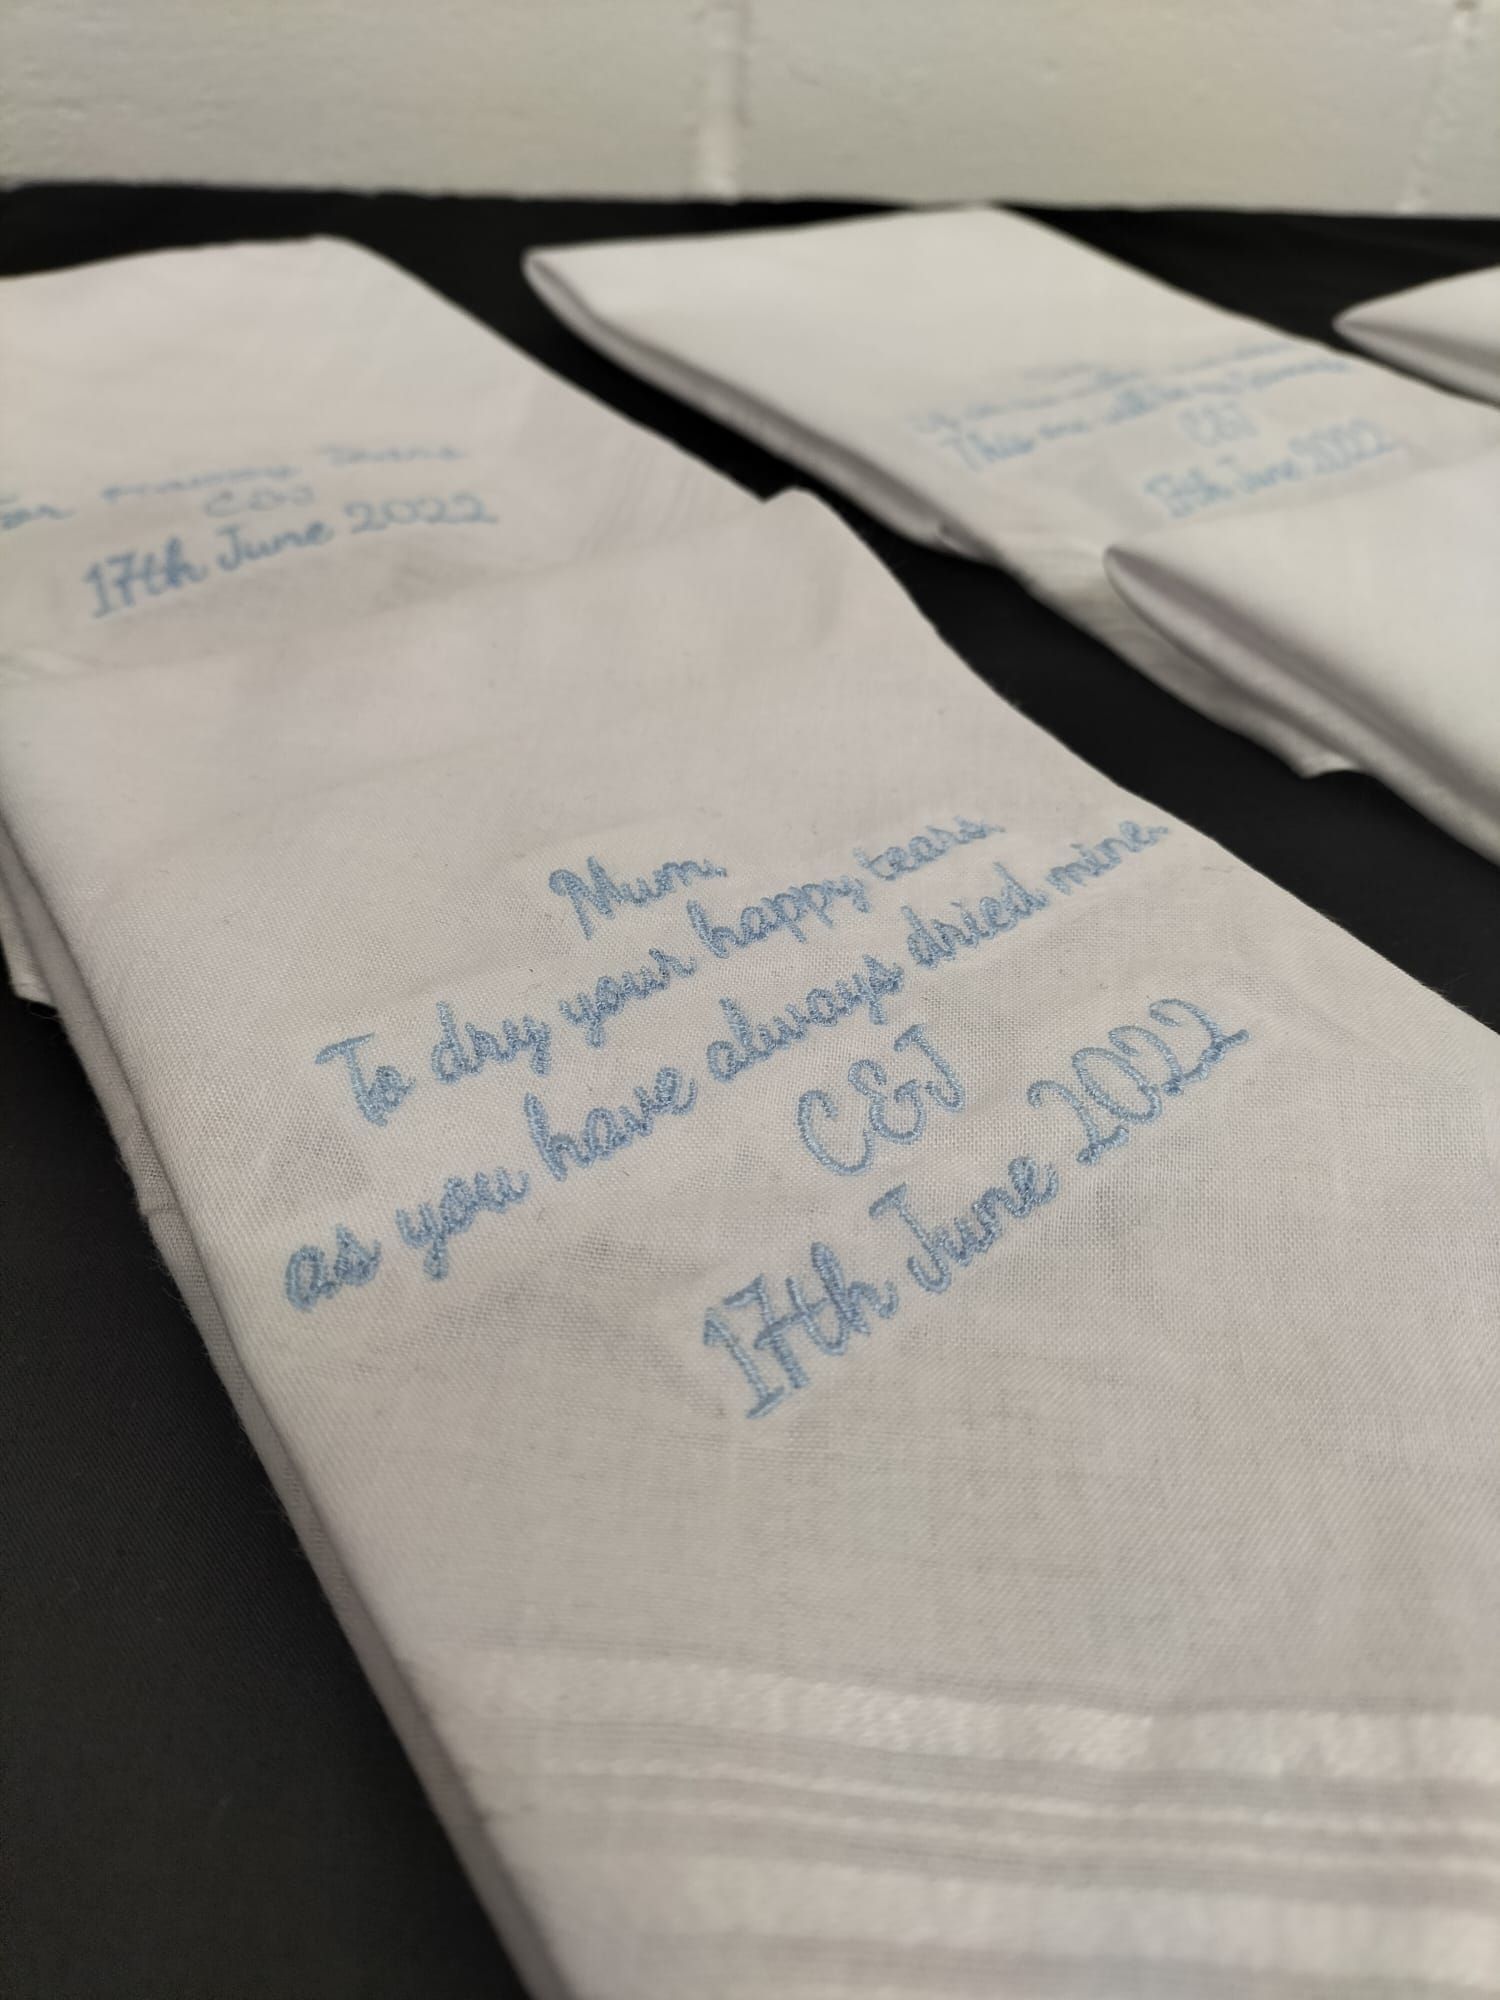 C&J
17th June 2022
This one will be
C&J
17th June 2022
Mum,
To dry your happy tears,
as you have always dried mine.
C&J
17th June 2022